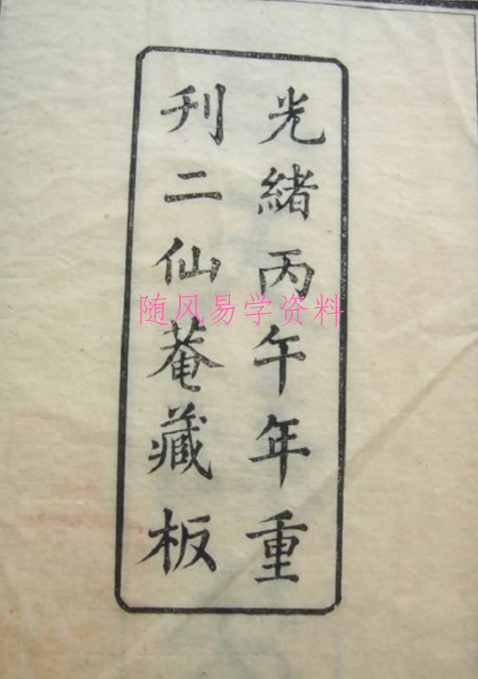 光緒丙午年重
刊二仙菴藏板
随风易学资料